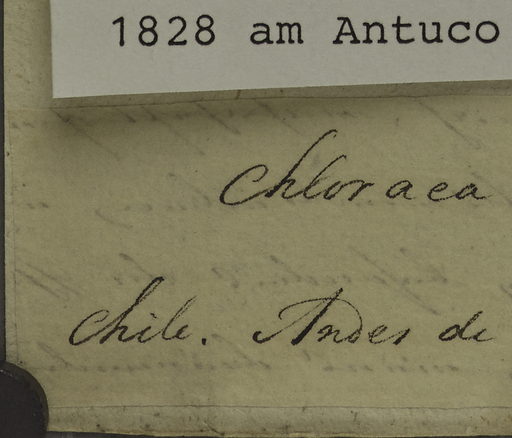 1828 am Antuco
Chloraea
Chile. Andes de